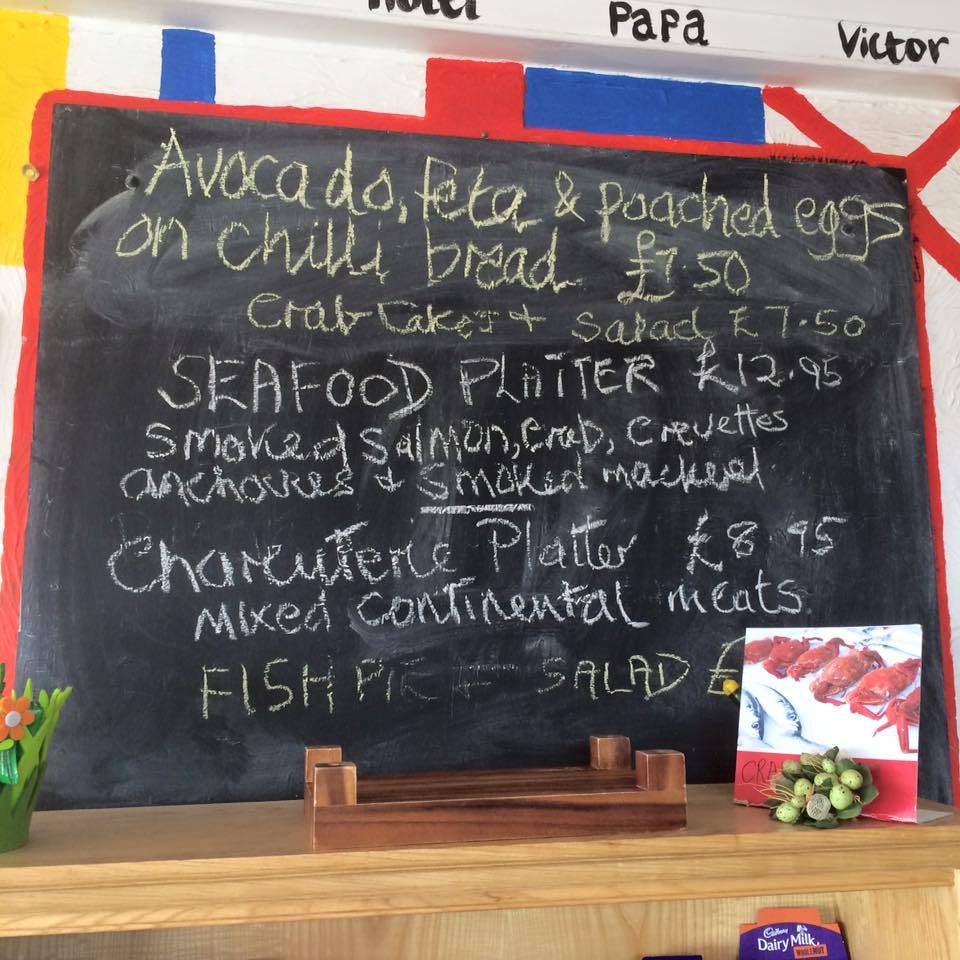 Hotel
Papa
Victor
Avocado, feta & poached eggs
on chilli bread £7.50
Crab Cakes + Salad £7.50
SEAFOOD PLATTER £12.95
Smoked Salmon, Crab, Crevettes
anchovies + Smoked mackerel
Charcuterie Platter £8.95
Mixed continental meats
FISH PIE + SALAD £
CRA
Cadbury
Dairy Milk
WHOLE NUT